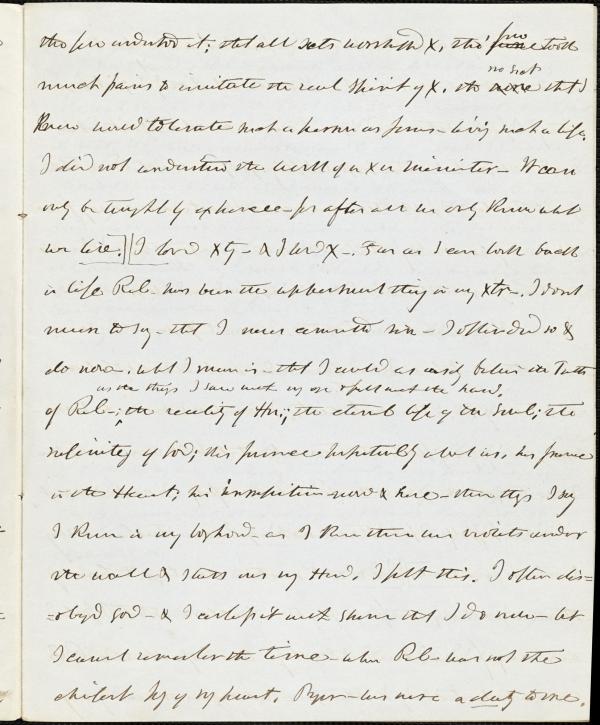 tho few understood it; that all sects worshipped X, tho' few took
much pains to imitate the real Spirit of X. no sect that I
Knew would tolerate such a person as Jesus – living such a life.
I did not understand the work of a Xn minister – We can
only be taught by experience – for after all we only Know what
we live.] [I loved Xty – & I loved X –. Far as I can look back
in life Rel– has been the uppermost thing in my Xtr–. I dont
mean to say – that I never committed sin – I often did so &
do now. what I mean is – that I could as easily believe the Truths
as the things I saw with my eye & felt with the hand,
of Rel–; the reality of Him; the eternal life of the Soul; the
infinity of God; his presence perpetually about us, his presence
in the Heart; his inspiration now & here – these things I say
I Knew in my boyhood – as I Knew there were violets under
the wall & stars over my Head. I felt this. I often dis=
=obeyed God – & I confess it with shame that I do now – but
I cannot remember the time – when Rel– was not the
chiefest thing of my heart. Prayer – was never a duty to me.